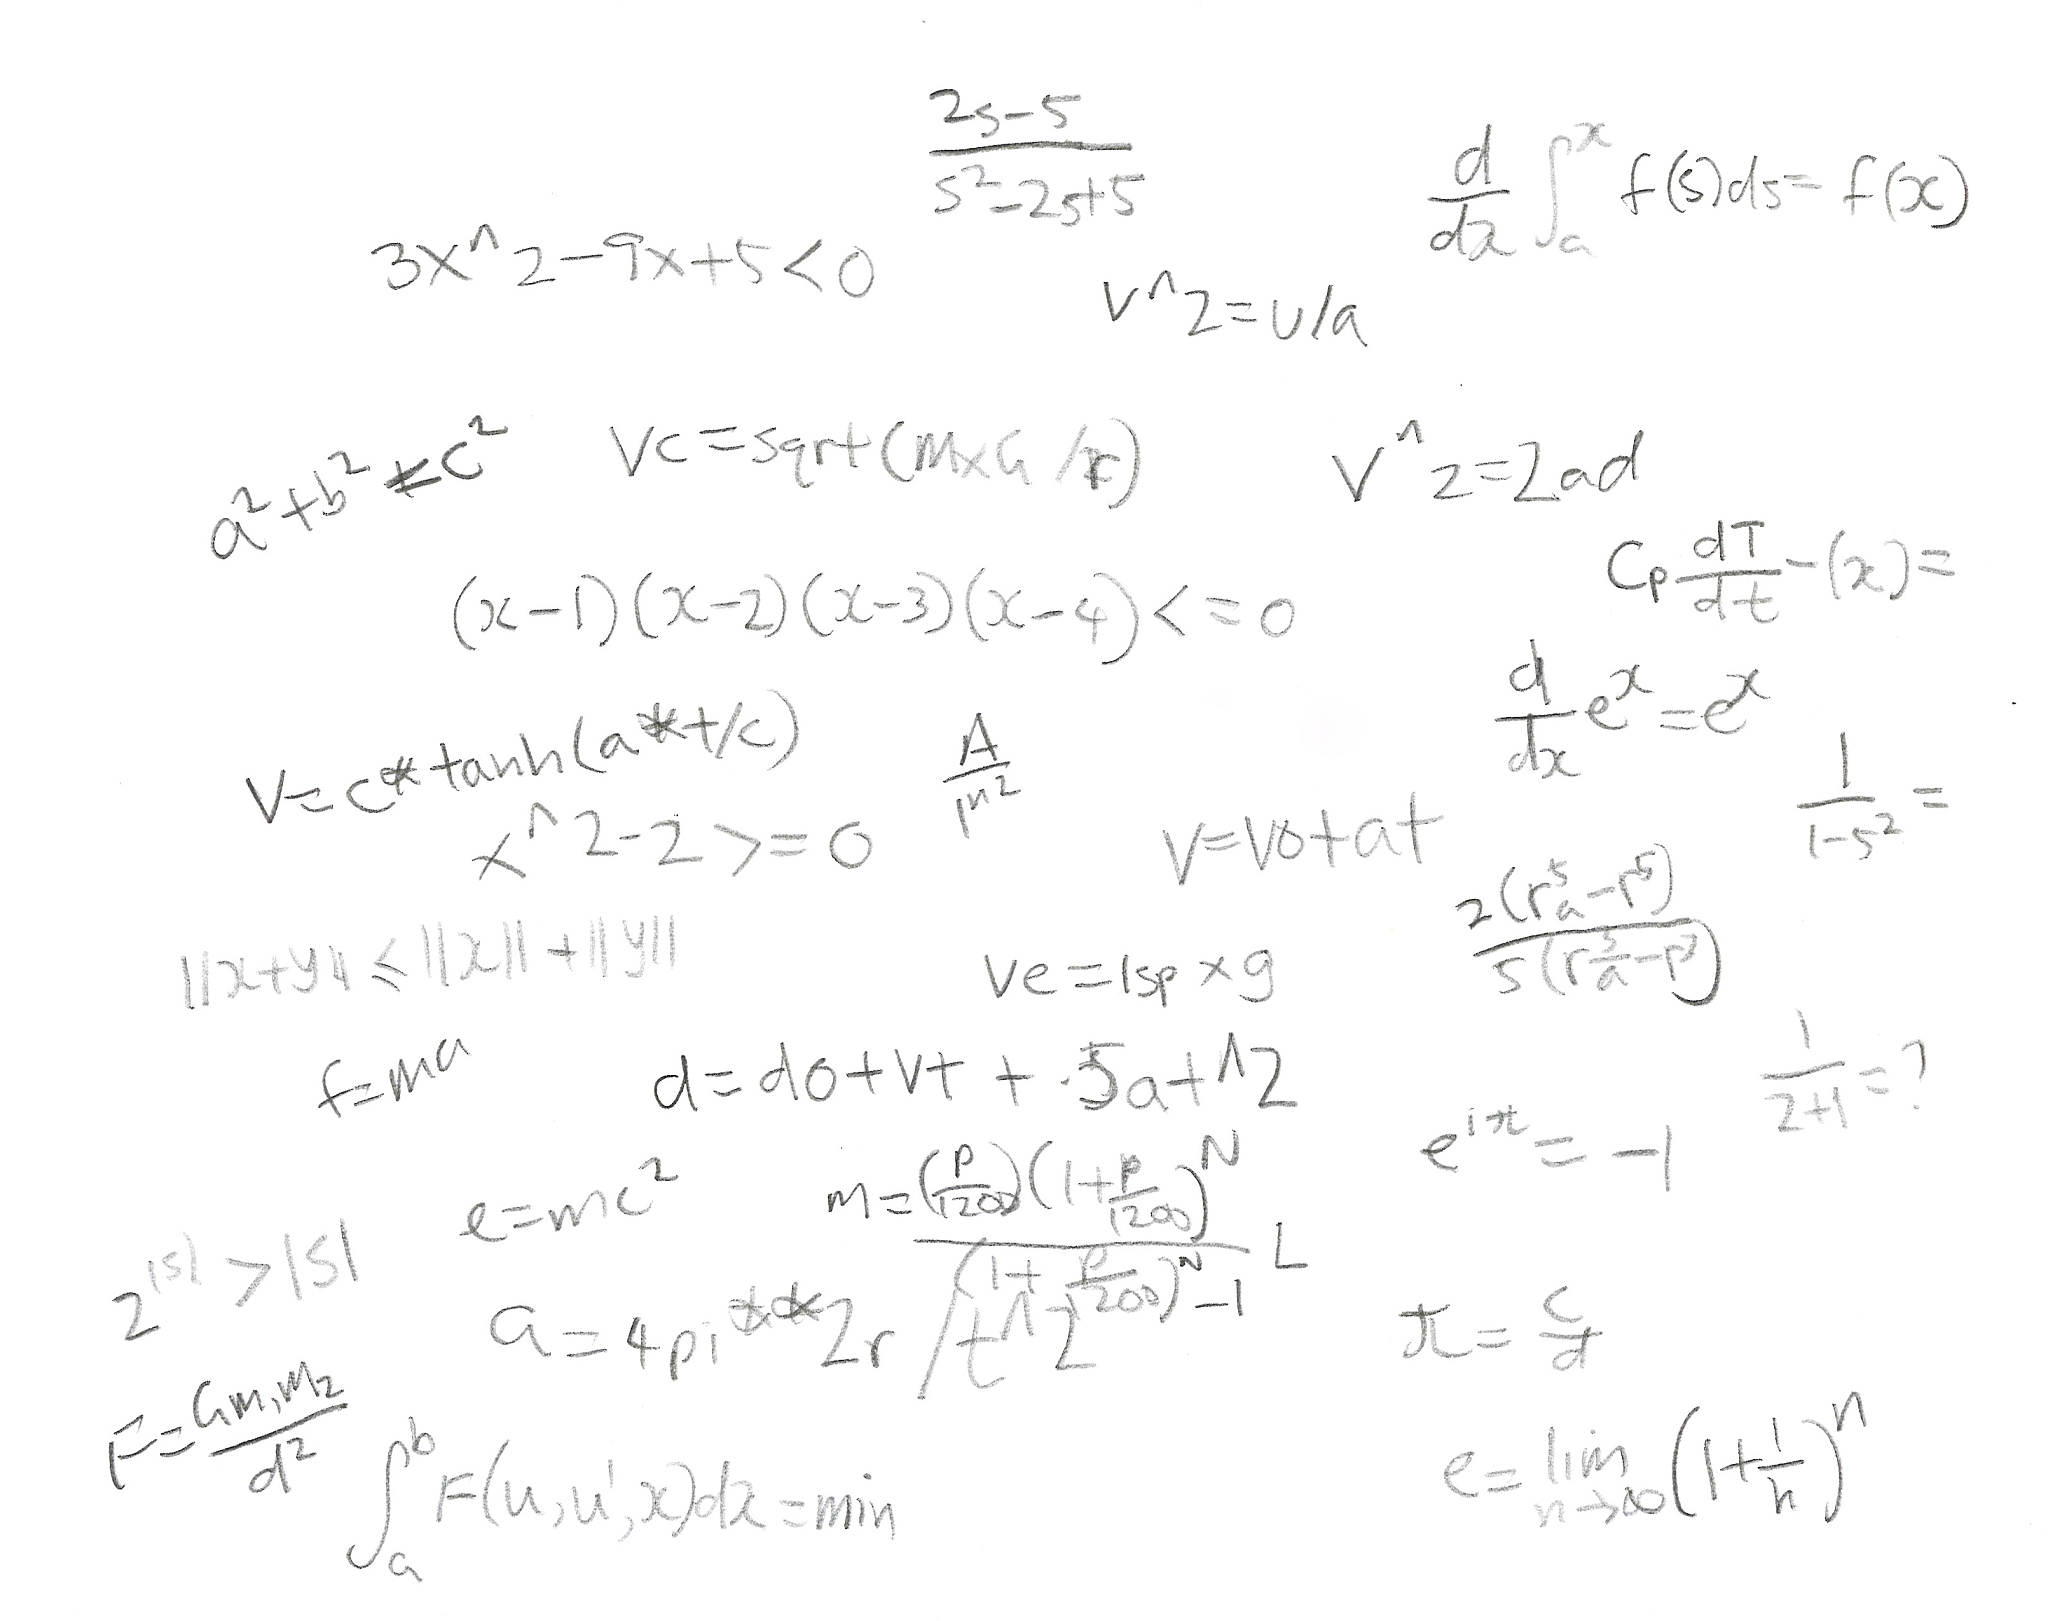 2s-5
s²-2s+5
d/dx ∫ₐˣ f(s)ds=f(x)
3x^2-9x+5<0
v^2=u/a
a²+b²≠c²
Vc=sqrt(MxG/r)
v^2=2ad
Cp dT/dt-(x)=
(x-1)(x-2)(x-3)(x-4)<=0
d/dx eˣ=eˣ
V=c*tanh(a*t/c)
A/m²
1/(1-s²)=
x^2-2>=0
v=vo+at
2(rₐ⁵-r⁵)
5(rₐ³-r³)
||x+y||≤||x||+||y||
ve=Isp x g
f=ma
d=do+vt+.5at^2
1/(2+1)=?
e^(iπ)=-1
e=mc²
m=(P/1200)(1+P/1200)^N
(1+P/1200)^N-1 L
2^|s|>|s|
a=4pi**2r/t^2
π=c/d
F=Gm₁m₂/d²
∫ₐᵇF(u,u',x)dx=min
e=lim n→∞(1+1/n)ⁿ